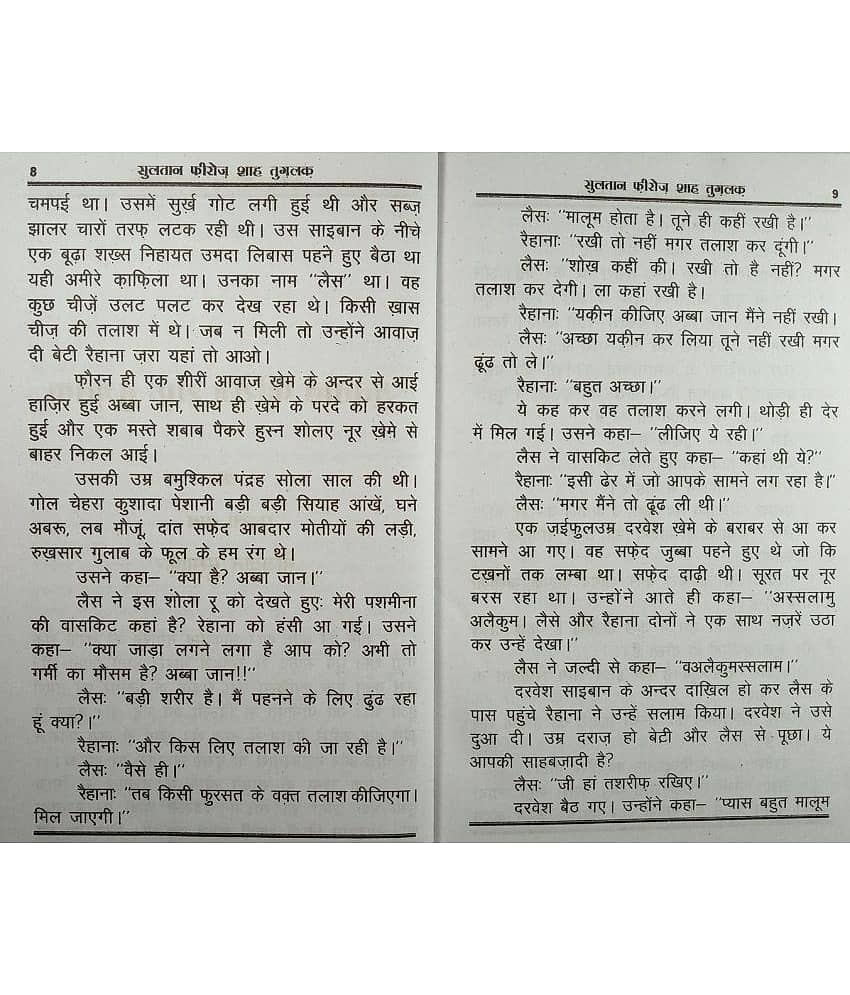 8
सुलतान फ़ीरोज़ शाह तुग़लक़
चमपई था। उसमें सुर्ख़ गोट लगी हुई थी और सब्ज़
झालर चारों तरफ़ लटक रही थी। उस साइबान के नीचे
एक बूढ़ा शख़्स निहायत उमदा लिबास पहने हुए बैठा था
यही अमीरे क़ाफ़िला था। उनका नाम ''लैस'' था। वह
कुछ चीज़ें उलट पलट कर देख रहा थे। किसी ख़ास
चीज़ की तलाश में थे। जब न मिली तो उन्होंने आवाज़
दी बेटी रैहाना ज़रा यहां तो आओ।
फ़ौरन ही एक शीरीं आवाज़ ख़ेमे के अन्दर से आई
हाज़िर हुई अब्बा जान, साथ ही ख़ेमे के परदे को हरकत
हुई और एक मस्ते शबाब पैकरे हुस्न शोलए नूर ख़ेमे से
बाहर निकल आई।
उसकी उम्र बमुश्किल पंद्रह सोला साल की थी।
गोल चेहरा कुशादा पेशानी बड़ी बड़ी सियाह आंखें, घने
अबरू, लब मौजूं, दांत सफ़ेद आबदार मोतीयों की लड़ी,
रुख़सार गुलाब के फूल के हम रंग थे।
उसने कहा– ''क्या है? अब्बा जान।''
लैस ने इस शोला रू को देखते हुएः मेरी पशमीना
की वासकिट कहां है? रेहाना को हंसी आ गई। उसने
कहा– ''क्या जाड़ा लगने लगा है आप को? अभी तो
गर्मी का मौसम है? अब्बा जान!!''
लैसः ''बड़ी शरीर है। मैं पहनने के लिए ढुंढ रहा
हूं क्या?।''
रैहानाः ''और किस लिए तलाश की जा रही है।''
लैसः ''वैसे ही।''
रैहानाः ''तब किसी फ़ुरसत के वक़्त तलाश कीजिएगा।
मिल जाएगी।''
सुलतान फ़ीरोज़ शाह तुग़लक़
9
लैसः ''मालूम होता है। तूने ही कहीं रखी है।''
रैहानाः ''रखी तो नहीं मगर तलाश कर दूंगी।''
लैसः ''शोख़ कहीं की। रखी तो है नहीं? मगर
तलाश कर देगी। ला कहां रखी है।
रैहानाः ''यक़ीन कीजिए अब्बा जान मैंने नहीं रखी।
लैसः ''अच्छा यक़ीन कर लिया तूने नहीं रखी मगर
ढूंढ तो ले।''
रैहानाः ''बहुत अच्छा।''
ये कह कर वह तलाश करने लगी। थोड़ी ही देर
में मिल गई। उसने कहा– ''लीजिए ये रही।''
लैस ने वासकिट लेते हुए कहा– ''कहां थी ये?''
रैहानाः ''इसी ढेर में जो आपके सामने लग रहा है।''
लैसः ''मगर मैंने तो ढूंढ ली थी।''
एक ज़ईफ़ुलउम्र दरवेश ख़ेमे के बराबर से आ कर
सामने आ गए। वह सफ़ेद जुब्बा पहने हुए थे जो कि
टख़नों तक लम्बा था। सफ़ेद दाढ़ी थी। सूरत पर नूर
बरस रहा था। उन्होंने आते ही कहा– ''अस्सलामु
अलैकुम। लैसे और रैहाना दोनों ने एक साथ नज़रें उठा
कर उन्हें देखा।''
लैस ने जल्दी से कहा– ''वअलैकुमस्सलाम।''
दरवेश साइबान के अन्दर दाख़िल हो कर लैस के
पास पहुंचे रैहाना ने उन्हें सलाम किया। दरवेश ने उसे
दुआ दी। उम्र दराज़ हो बेटी और लैस से पूछा। ये
आपकी साहबज़ादी है?
लैसः ''जी हां तशरीफ़ रखिए।''
दरवेश बैठ गए। उन्होंने कहा– ''प्यास बहुत मालूम